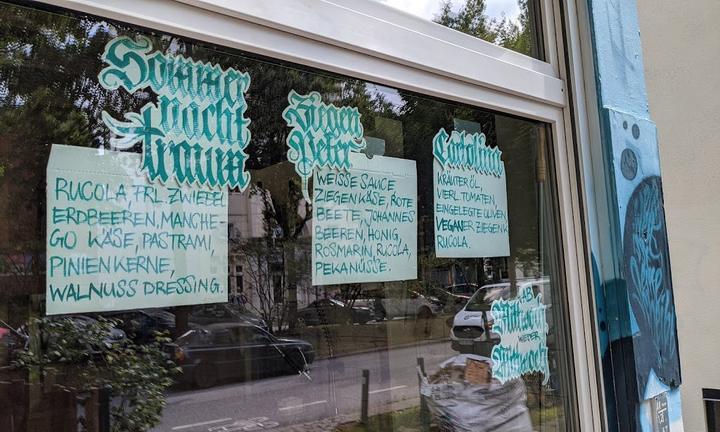 Sommer
nacht
traum
RUCOLA, FRL. ZWIEBEL
ERDBEEREN, MANCHE-
GO KÄSE, PASTRAMI,
PINIENKERNE,
WALNUSS DRESSING.
Ziegen
Peter
WEISSE SAUCE
ZIEGENKÄSE, ROTE
BEETE, JOHANNES
BEEREN, HONIG,
ROSMARIN, RUCOLA,
PEKANÜSSE.
KRÄUTER ÖL,
VIERL. TOMATEN,
EINGELEGTE OLIVEN,
VEGANER ZIEGENK
RUCOLA.
AB
Mittwoch
WIEDER
Mittwoch